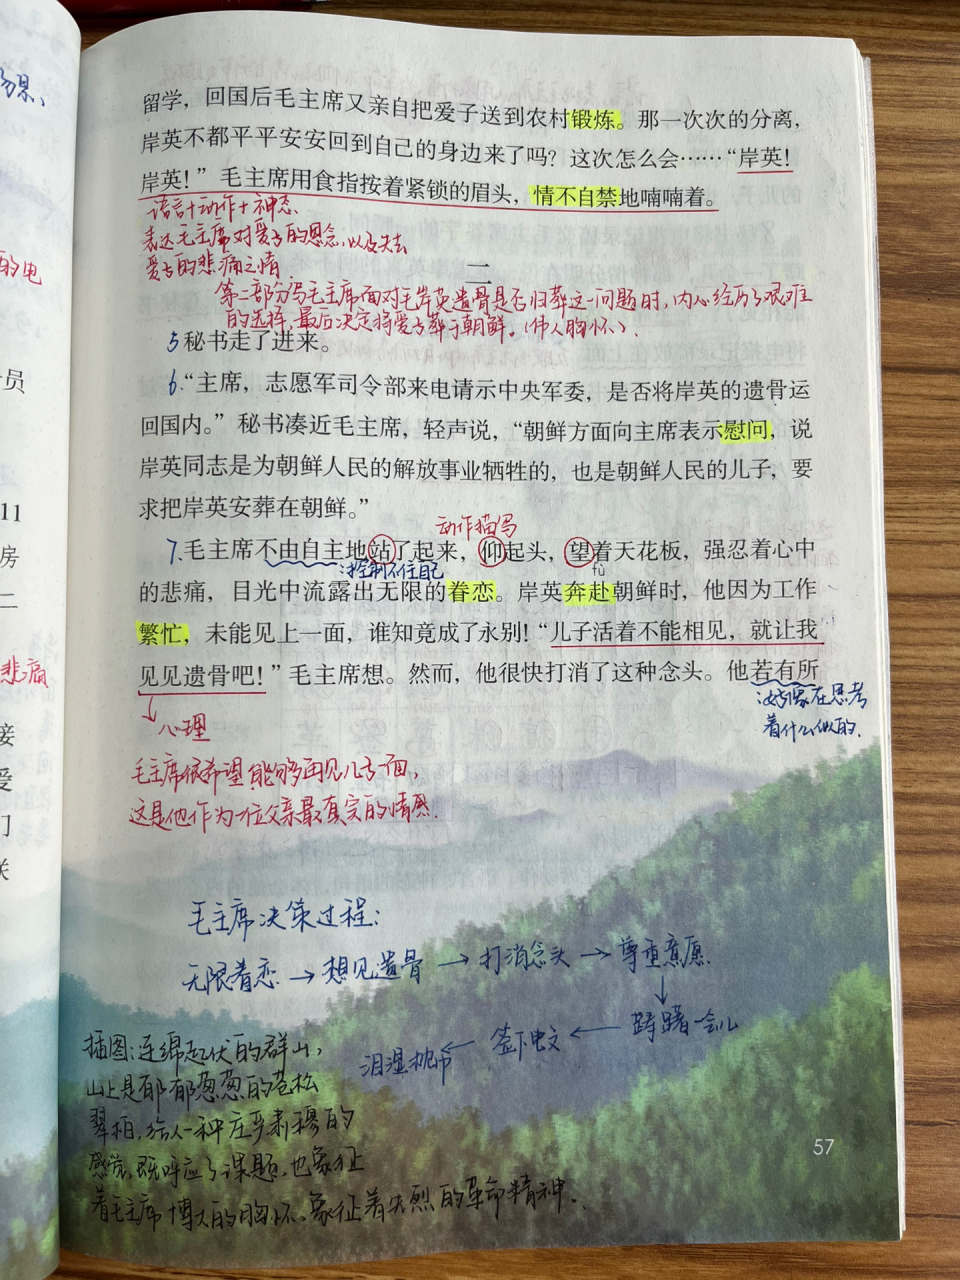 留学，回国后毛主席又亲自把爱子送到农村锻炼。那一次次的分离，
岸英不都平平安安回到自己的身边来了吗？这次怎么会……“岸英！
岸英！”毛主席用食指按着紧锁的眉头，情不自禁地喃喃着。
语言+动作+神态
表达毛主席对爱子的思念，以及失去
爱子的悲痛之情.
二
第二部分写毛主席面对毛岸英遗骨是否归葬这一问题时，内心经历了艰难
的选择，最后决定将爱子葬于朝鲜。（伟人胸怀）
5 秘书走了进来。
6.“主席，志愿军司令部来电请示中央军委，是否将岸英的遗骨运
回国内。”秘书凑近毛主席，轻声说，“朝鲜方面向主席表示慰问，说
岸英同志是为朝鲜人民的解放事业牺牲的，也是朝鲜人民的儿子，要
求把岸英安葬在朝鲜。”
动作描写
7.毛主席不由自主地站了起来，仰起头，望着天花板，强忍着心中
:控制不住自己
fù
的悲痛，目光中流露出无限的眷恋。岸英奔赴朝鲜时，他因为工作
繁忙，未能见上一面，谁知竟成了永别！“儿子活着不能相见，就让我
见见遗骨吧！”毛主席想。然而，他很快打消了这种念头。他若有所
:好像在思考
着什么似的.
心理
毛主席很希望能够再见儿子一面，
这是他作为一位父亲最真实的情感.
毛主席决策过程：
无限眷恋→想见遗骨→打消念头→尊重意愿
↓
踌躇一会儿
←签下电文←
泪湿枕巾
插图：连绵起伏的群山，
山上是郁郁葱葱的苍松
翠柏，给人一种庄严肃穆的
感觉，既呼应了课题，也象征
着毛主席博大的胸怀、象征着先烈的革命精神.
57
场景、
的电
员
11
房
二
悲痛
接
爱
门
关